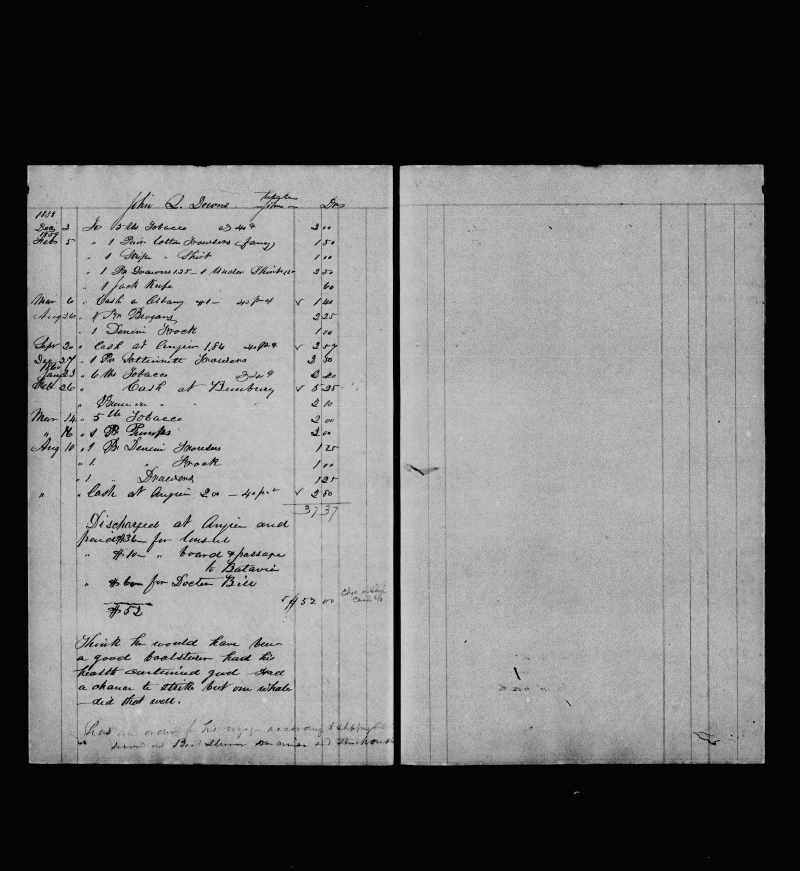 John Q. Downs Drs
1858
Dec 3 To 5 lbs Tobacco @ 40¢ 2 00
1859
Feb 5 " 1 Pair Cotton Trowsers (fancy) 1 50
" 1 Stripe " Shirt 1 00
" 1 Pr Drawers 1.25 - 1 Under Shirt
" 1 Jack Knife 60
Mar 6 " Cash a Albany 1 40
Aug 26 " 1 Pr Brogans 2 25
" 1 Denim Frock 1 00
Sept 20 " Cash at Angier 1,84 40 pr ct 2 57
Dec 27 " 1 Pr Sattinett Trowsers
1860
Jany 23 " 6 lbs Tobacco
Feb 26 " Cash at Bunbury 5 25
" " " 2 10
Mar 14 " 5 lb Tobacco 2 00
" 16 " 1 Pr Pumps 2 00
Aug 10 " 1 Pr Denim Trowsers 1 25
" 1 " Frock 1 00
" 1 " Drawers 1 25
" " Cash at Angier 2 00 - 40 pr ct 2 80
37 37
Discharged at Angier and
paid $36 for Consul
" $10 " board & passage
to Batavia
" $6 for Doctor Bill
$52 $52 00
Think he would have been
a good boatsteerer had his
health continued good Had
a chance to strike but one whale
- did that well.
order his according to
and